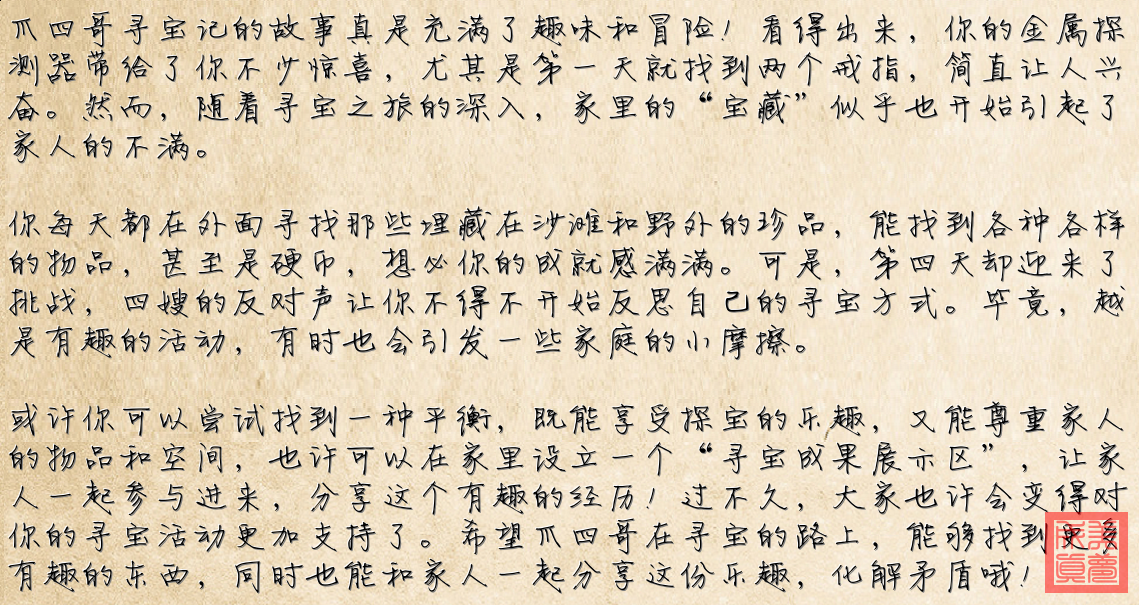 爪四哥寻宝记的故事真是充满了趣味和冒险！看得出来，你的金属探
测器带给了你不少惊喜，尤其是第一天就找到两个戒指，简直让人兴
奋。然而，随着寻宝之旅的深入，家里的“宝藏”似乎也开始引起了
家人的不满。
你每天都在外面寻找那些埋藏在沙滩和野外的珍品，能找到各种各样
的物品，甚至是硬币，想必你的成就感满满。可是，第四天却迎来了
挑战，四嫂的反对声让你不得不开始反思自己的寻宝方式。毕竟，越
是有趣的活动，有时也会引发一些家庭的小摩擦。
或许你可以尝试找到一种平衡，既能享受探宝的乐趣，又能尊重家人
的物品和空间，也许可以在家里设立一个“寻宝成果展示区”，让家
人一起参与进来，分享这个有趣的经历！过不久，大家也许会变得对
你的寻宝活动更加支持了。希望爪四哥在寻宝的路上，能够找到更多
有趣的东西，同时也能和家人一起分享这份乐趣，化解矛盾哦！